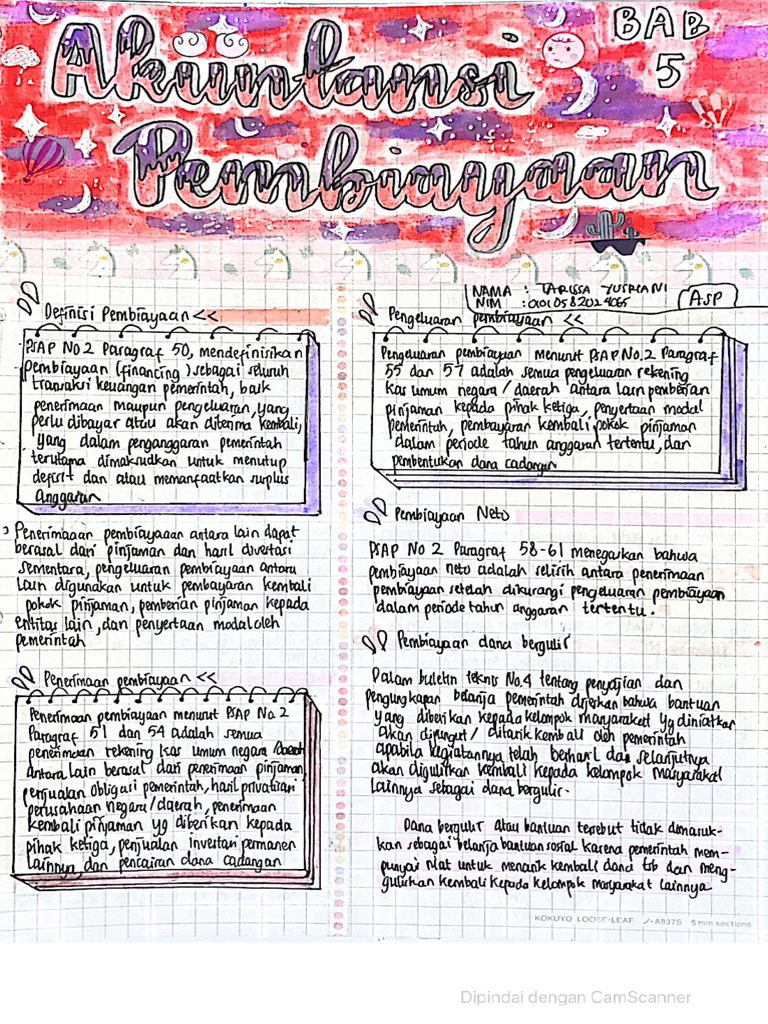 BAB
5
Akuntansi
Pembiayaan
NAMA : TARISSA YUSRIANI
NIM : 01010582024065
ASP
Definisi Pembiayaan <<
PSAP No 2 Paragraf 50, mendefinisikan
pembiayaan (financing) sebagai seluruh
transaksi keuangan pemerintah, baik
penerimaan maupun pengeluaran, yang
perlu dibayar atau akan diterima kembali,
yang dalam penganggaran pemerintah
terutama dimaksudkan untuk menutup
defisit dan atau memanfaatkan surplus
anggaran
Penerimaan pembiayaan antara lain dapat
berasal dari pinjaman dan hasil divestasi
sementara, pengeluaran pembiayaan antara
lain digunakan untuk pembayaran kembali
pokok pinjaman, pemberian pinjaman kepada
entitas lain, dan penyertaan modal oleh
pemerintah
Penerimaan pembiayaan <<
Penerimaan pembiayaan menurut PSAP No. 2
Paragraf 51 dan 54 adalah semua
penerimaan rekening kas umum negara/daerah
antara lain berasal dari penerimaan pinjaman,
penjualan obligasi pemerintah, hasil privatisasi
perusahaan negara/daerah, penerimaan
kembali pinjaman yg diberikan kepada
pihak ketiga, penjualan investasi permanen
lainnya, dan pencairan dana cadangan
Pengeluaran pembiayaan <<
Pengeluaran pembiayaan menurut PSAP No. 2 Paragraf
55 dan 57 adalah semua pengeluaran rekening
kas umum negara/daerah antara lain pemberian
pinjaman kepada pihak ketiga, penyertaan modal
pemerintah, pembayaran kembali pokok pinjaman
dalam periode tahun anggaran tertentu, dan
pembentukan dana cadangan
Pembiayaan Neto
PSAP No 2 Paragraf 58-61 menegaskan bahwa
pembiayaan neto adalah selisih antara penerimaan
pembiayaan setelah dikurangi pengeluaran pembiayaan
dalam periode tahun anggaran tertentu.
Pembiayaan dana bergulir
Dalam buletin teknis No.4 tentang penyajian dan
pengungkapan belanja pemerintah dijelaskan bahwa bantuan
yang diberikan kepada kelompok masyarakat yg diniatkan
akan dipungut/ ditarik kembali oleh pemerintah
apabila kegiatannya telah berhasil dan selanjutnya
akan digulirkan kembali kepada kelompok masyarakat
lainnya sebagai dana bergulir.
Dana bergulir atau bantuan tersebut tidak dimasuk-
kan sebagai belanja bantuan sosial karena pemerintah mem-
punyai niat untuk menarik kembali dana tsb dan meng-
gulirkan kembali kepada kelompok masyarakat lainnya
KOKUYO LOOSE-LEAF ノ-A837S 5 mm sections
Dipindai dengan CamScanner